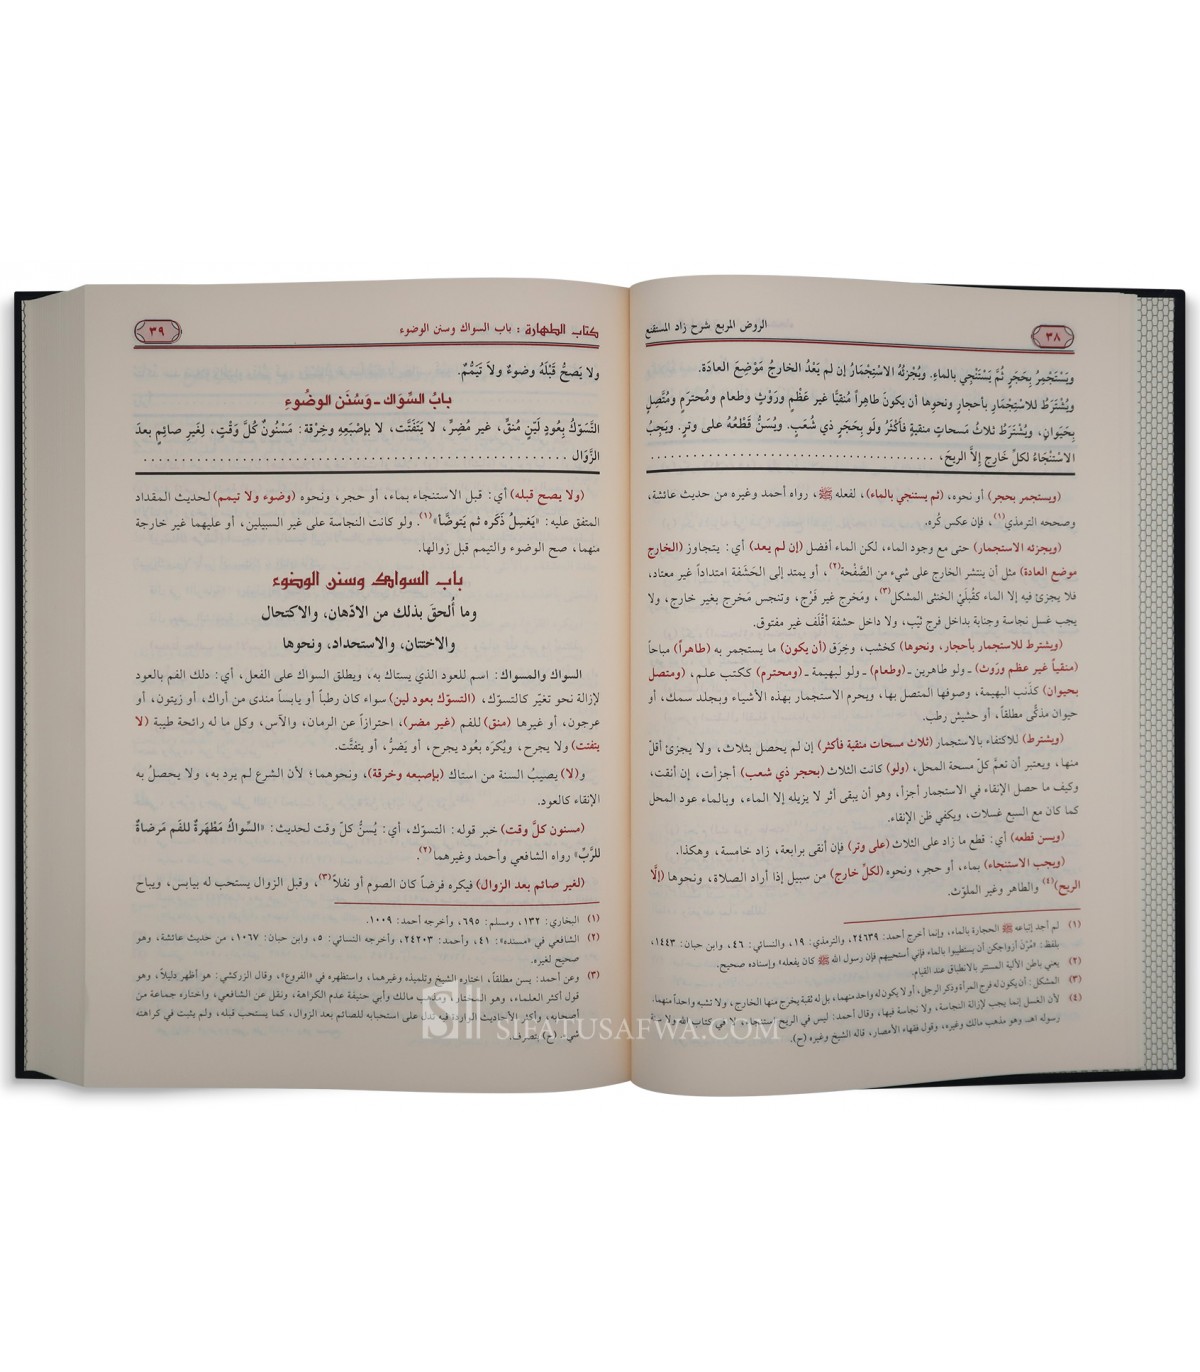 الروض المربع شرح زاد المستقنع
٣٨
ويَسْتَجْمِرُ بِحَجَرٍ ثُمَّ يَسْتَنْجِي بالماءِ. ويُجْزئُهُ الاسْتِجْمَارُ إن لم يَعْدُ الخارجُ مَوْضِعَ العادَة.
ويُشْتَرَطُ للاسْتِجْمَارِ بأحجارٍ ونحوِها أن يكونَ طاهِراً مُنقيًا غير عَظْمٍ ورَوْثٍ وطعامٍ ومُحترَمٍ ومُتَّصِلٍ
بِحَيَوانٍ، ويُشْتَرَطُ ثلاثُ مَسَحاتٍ منقيةٍ فأكْثَرُ ولَو بِحَجَرٍ ذي شُعَبٍ. ويُسَنُّ قَطْعُهُ على وِترٍ. ويَجِبُ
الاسْتنْجَاءُ لكلِّ خَارِجٍ إلاَّ الريحَ، ....................................
(ويستجمر بحجر) أو نحوه، (ثم يستنجي بالماء)، لفعله ﷺ، رواه أحمد وغيره من حديث عائشة،
وصححه الترمذي(١)، فإن عكس كُره.
(ويجزئه الاستجمار) حتى مع وجود الماء، لكن الماء أفضل (إن لم يعد) أي: يتجاوز (الخارج
موضع العادة) مثل أن ينتشر الخارج على شيء من الصَّفْحة(٢)، أو يمتد إلى الحَشَفة امتداداً غير معتاد،
فلا يجزئ فيه إلا الماء كقُبلَيْ الخنثى المشكل(٣)، ومَخرج غير فَرْج، وتنجس مَخرج بغير خارج، ولا
يجب غسل نجاسة وجنابة بداخل فرج ثيّب، ولا داخل حشفة أقْلَف غير مفتوق.
(ويشترط للاستجمار بأحجار، ونحوها) كخشب، وخِرَق (أن يكون) ما يستجمر به (طاهراً) مباحاً
(منقياً غير عظم وروث) ـ ولو طاهرين ـ (وطعام) ـ ولو لبهيمة ـ (ومحترم) ككتب علم، (ومتصل
بحيوان) كذَنب البهيمة، وصوفها المتصل بها، ويحرم الاستجمار بهذه الأشياء وبجلد سمك، أو
حيوان مذكًّى مطلقاً، أو حشيش رطب.
(ويشترط) للاكتفاء بالاستجمار (ثلاث مسحات منقية فأكثر) إن لم يحصل بثلاث، ولا يجزئ أقلّ
منها، ويعتبر أن تعمَّ كلّ مسحة المحل، (ولو) كانت الثلاث (بحجر ذي شعب) أجزأت، إن أنقت،
وكيف ما حصل الإنقاء في الاستجمار أجزأ، وهو أن يبقى أثر لا يزيله إلا الماء، وبالماء عود المحل
كما كان مع السبع غسلات، ويكفي ظن الإنقاء.
(ويسن قطعه) أي: قطع ما زاد على الثلاث (على وتر) فإن أنقى برابعة، زاد خامسة، وهكذا.
(ويجب الاستنجاء) بماء، أو حجر، ونحوه (لكلّ خارج) من سبيل إذا أراد الصلاة، ونحوها (إلَّا
الريح)(٤) والطاهر وغير الملوّث.
(١) لم أجد إتباعه ﷺ الحجارة بالماء، وإنما أخرج أحمد: ٢٤٦٣٩، والترمذي: ١٩، والنسائي: ٤٦، وابن حبان: ١٤٤٣،
بلفظ: «مُرْنَ أزواجكن أن يستطيبوا بالماء فإني أستحييهم فإن رسول الله ﷺ كان يفعله» وإسناده صحيح.
(٢) يعني باطن الألية المستتر بالانطباق عند القيام.
(٣) المشكل: أن يكون له فرج المرأة وذكر الرجل، أو لا يكون له واحد منهما، بل له ثقبة يخرج منها الخارج، ولا تشبه واحداً منهما.
(٤) لأن الغسل إنما يجب لإزالة النجاسة، ولا نجاسة فيها، وقال أحمد: ليس في الريح استنجاء، لا في كتاب الله ولا سنة
رسوله اهـ. وهو مذهب مالك وغيره، وقول فقهاء الأمصار، قاله الشيخ وغيره (ح).
كتاب الطهارة : باب السواك وسنن الوضوء
٣٩
ولا يَصحُّ قَبْلَهُ وضوءٌ ولاَ تَيَمُّمٌ.
بابُ السِّوَاك ـ وَسُنَن الوضُوءِ
التَّسَوّكُ بِعُودٍ لَيّنٍ مُنقٍّ، غير مُضِرٍّ، لا يَتَفَتَّت، لا بِإصْبَعِهِ وخِرْقة: مَسْنُونٌ كُلَّ وَقْتٍ، لِغَيرِ صائِمٍ بعدَ
الزَّوَال ....................................................
(ولا يصح قبله) أي: قبل الاستنجاء بماء، أو حجر، ونحوه (وضوء ولا تيمم) لحديث المقداد
المتفق عليه: «يَغسِلُ ذَكَره ثم يَتوضَّأ»(١). ولو كانت النجاسة على غير السبيلين، أو عليهما غير خارجة
منهما، صح الوضوء والتيمم قبل زوالها.
باب السواك وسنن الوضوء
وما أُلحقَ بذلك من الادّهان، والاكتحال
والاختتان، والاستحداد، ونحوها
السواك والمسواك: اسم للعود الذي يستاك به، ويطلق السواك على الفعل، أي: دلك الفم بالعود
لإزالة نحو تغيّر كالتسوّك، (التسوّك بعود لين) سواء كان رطباً أو يابساً مندى من أراك، أو زيتون، أو
عرجون، أو غيرها (منق) للفم (غير مضر)، احترازاً عن الرمان، والآس، وكل ما له رائحة طيبة (لا
يتفتت) ولا يجرح، ويُكرَه بعُود يجرح، أو يَضرُّ، أو يتفتَّت.
و(لا) يصيبُ السنة من استاك (بإصبعه وخرقة)، ونحوهما؛ لأن الشرع لم يرد به، ولا يحصلُ به
الإنقاء كالعود.
(مسنون كلَّ وقت) خبر قوله: التسوّك، أي: يُسنُّ كلّ وقت لحديث: «السِّواكُ مَطْهَرَةٌ للفَم مَرضاةٌ
للرَّبِّ» رواه الشافعي وأحمد وغيرهما(٢).
(لغير صائم بعد الزوال) فيكره فرضاً كان الصوم أو نفلاً(٣)، وقبل الزوال يستحب له بيابس، ويباح
(١) البخاري: ١٣٢، ومسلم: ٦٩٥، وأخرجه أحمد: ١٠٠٩.
(٢) الشافعي في «مسنده»: ٤١، وأحمد: ٢٤٢٠٣، وأخرجه النسائي: ٥، وابن حبان: ١٠٦٧، من حديث عائشة، وهو
صحيح لغيره.
(٣) وعن أحمد: يسن مطلقاً، اختاره الشيخ وتلميذه وغيرهما، واستظهره في «الفروع»، وقال الزركشي: هو أظهر دليلاً، وهو
قول أكثر العلماء، وهو المختار، ومذهب مالك وأبي حنيفة عدم الكراهة، ونقل عن الشافعي، واختاره جماعة من
أصحابه، وأكثر الأحاديث الواردة فيه تدل على استحبابه للصائم بعد الزوال، كما يستحب قبله، ولم يثبت في كراهته
شيء. (ح) بتصرف.
SIFATUSAFWA.COM